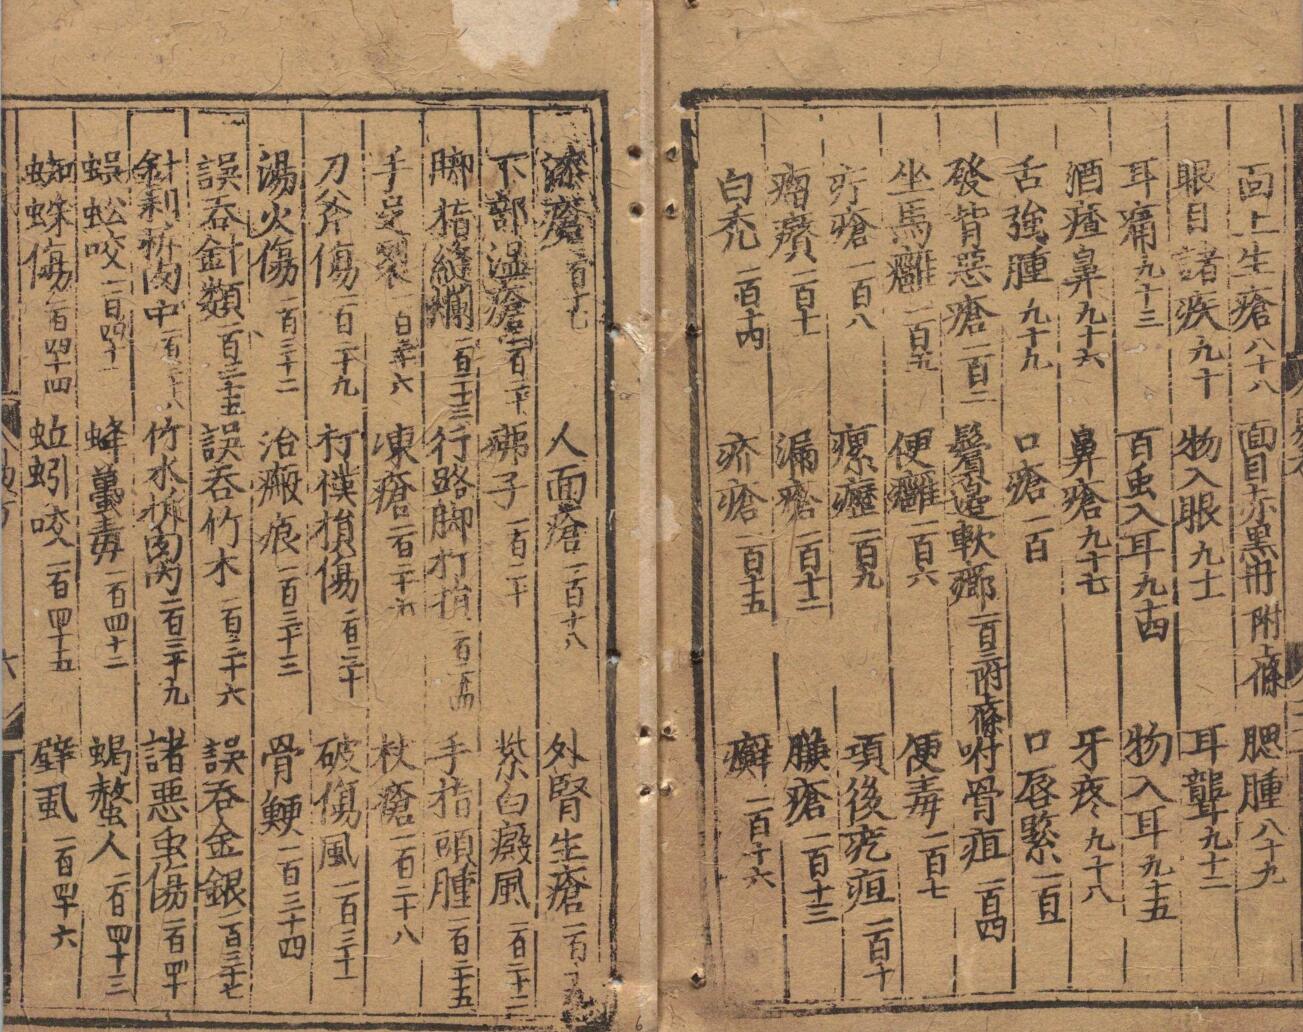 面上生瘡八十八 面目赤黑卌附上條 腮腫八十九
眼目諸疾九十 物入眼九十一 耳聾九十二
耳痛九十三 百虫入耳九十四 物入耳九十五
酒㾴鼻九十六 鼻瘡九十七 牙疼九十八
舌強腫九十九 口瘡一百 口唇緊一百一
發背惡瘡一百二 鬢邊軟癤一百三附條 咐骨疽一百四
坐馬癰一百五 便癰一百六 便毒一百七
疔瘡一百八 瘰癧一百九 項後疙疸一百十
瘤癭一百十一 漏瘡一百十二 臁瘡一百十三
白禿一百十四 疥瘡一百十五 癬一百十六
漆瘡一百十七 人面瘡一百十八 外腎生瘡一百十九
下部溫瘡一百二十 疿子一百二十 紫白癜風一百二十二
脚指縫爛一百二十三 行路脚打損一百二十四 手指頭腫一百二十五
手足裂一百二十六 凍瘡一百二十七 杖瘡一百二十八
刀斧傷一百二十九 打撲損傷一百三十 破傷風一百三十一
湯火傷一百三十二 治瘢痕一百三十三 骨鯁一百三十四
誤吞針類一百三十五 誤吞竹木一百三十六 誤吞金銀一百三十七
針刺折肉中一百三十八 竹木折肉內一百三十九 諸惡虫傷一百四十
蜈蚣咬一百四十一 蜂蠆毒一百四十二 蝎螫人一百四十三
蜘蛛傷一百四十四 蚯蚓咬一百四十五 壁虱一百四十六
六